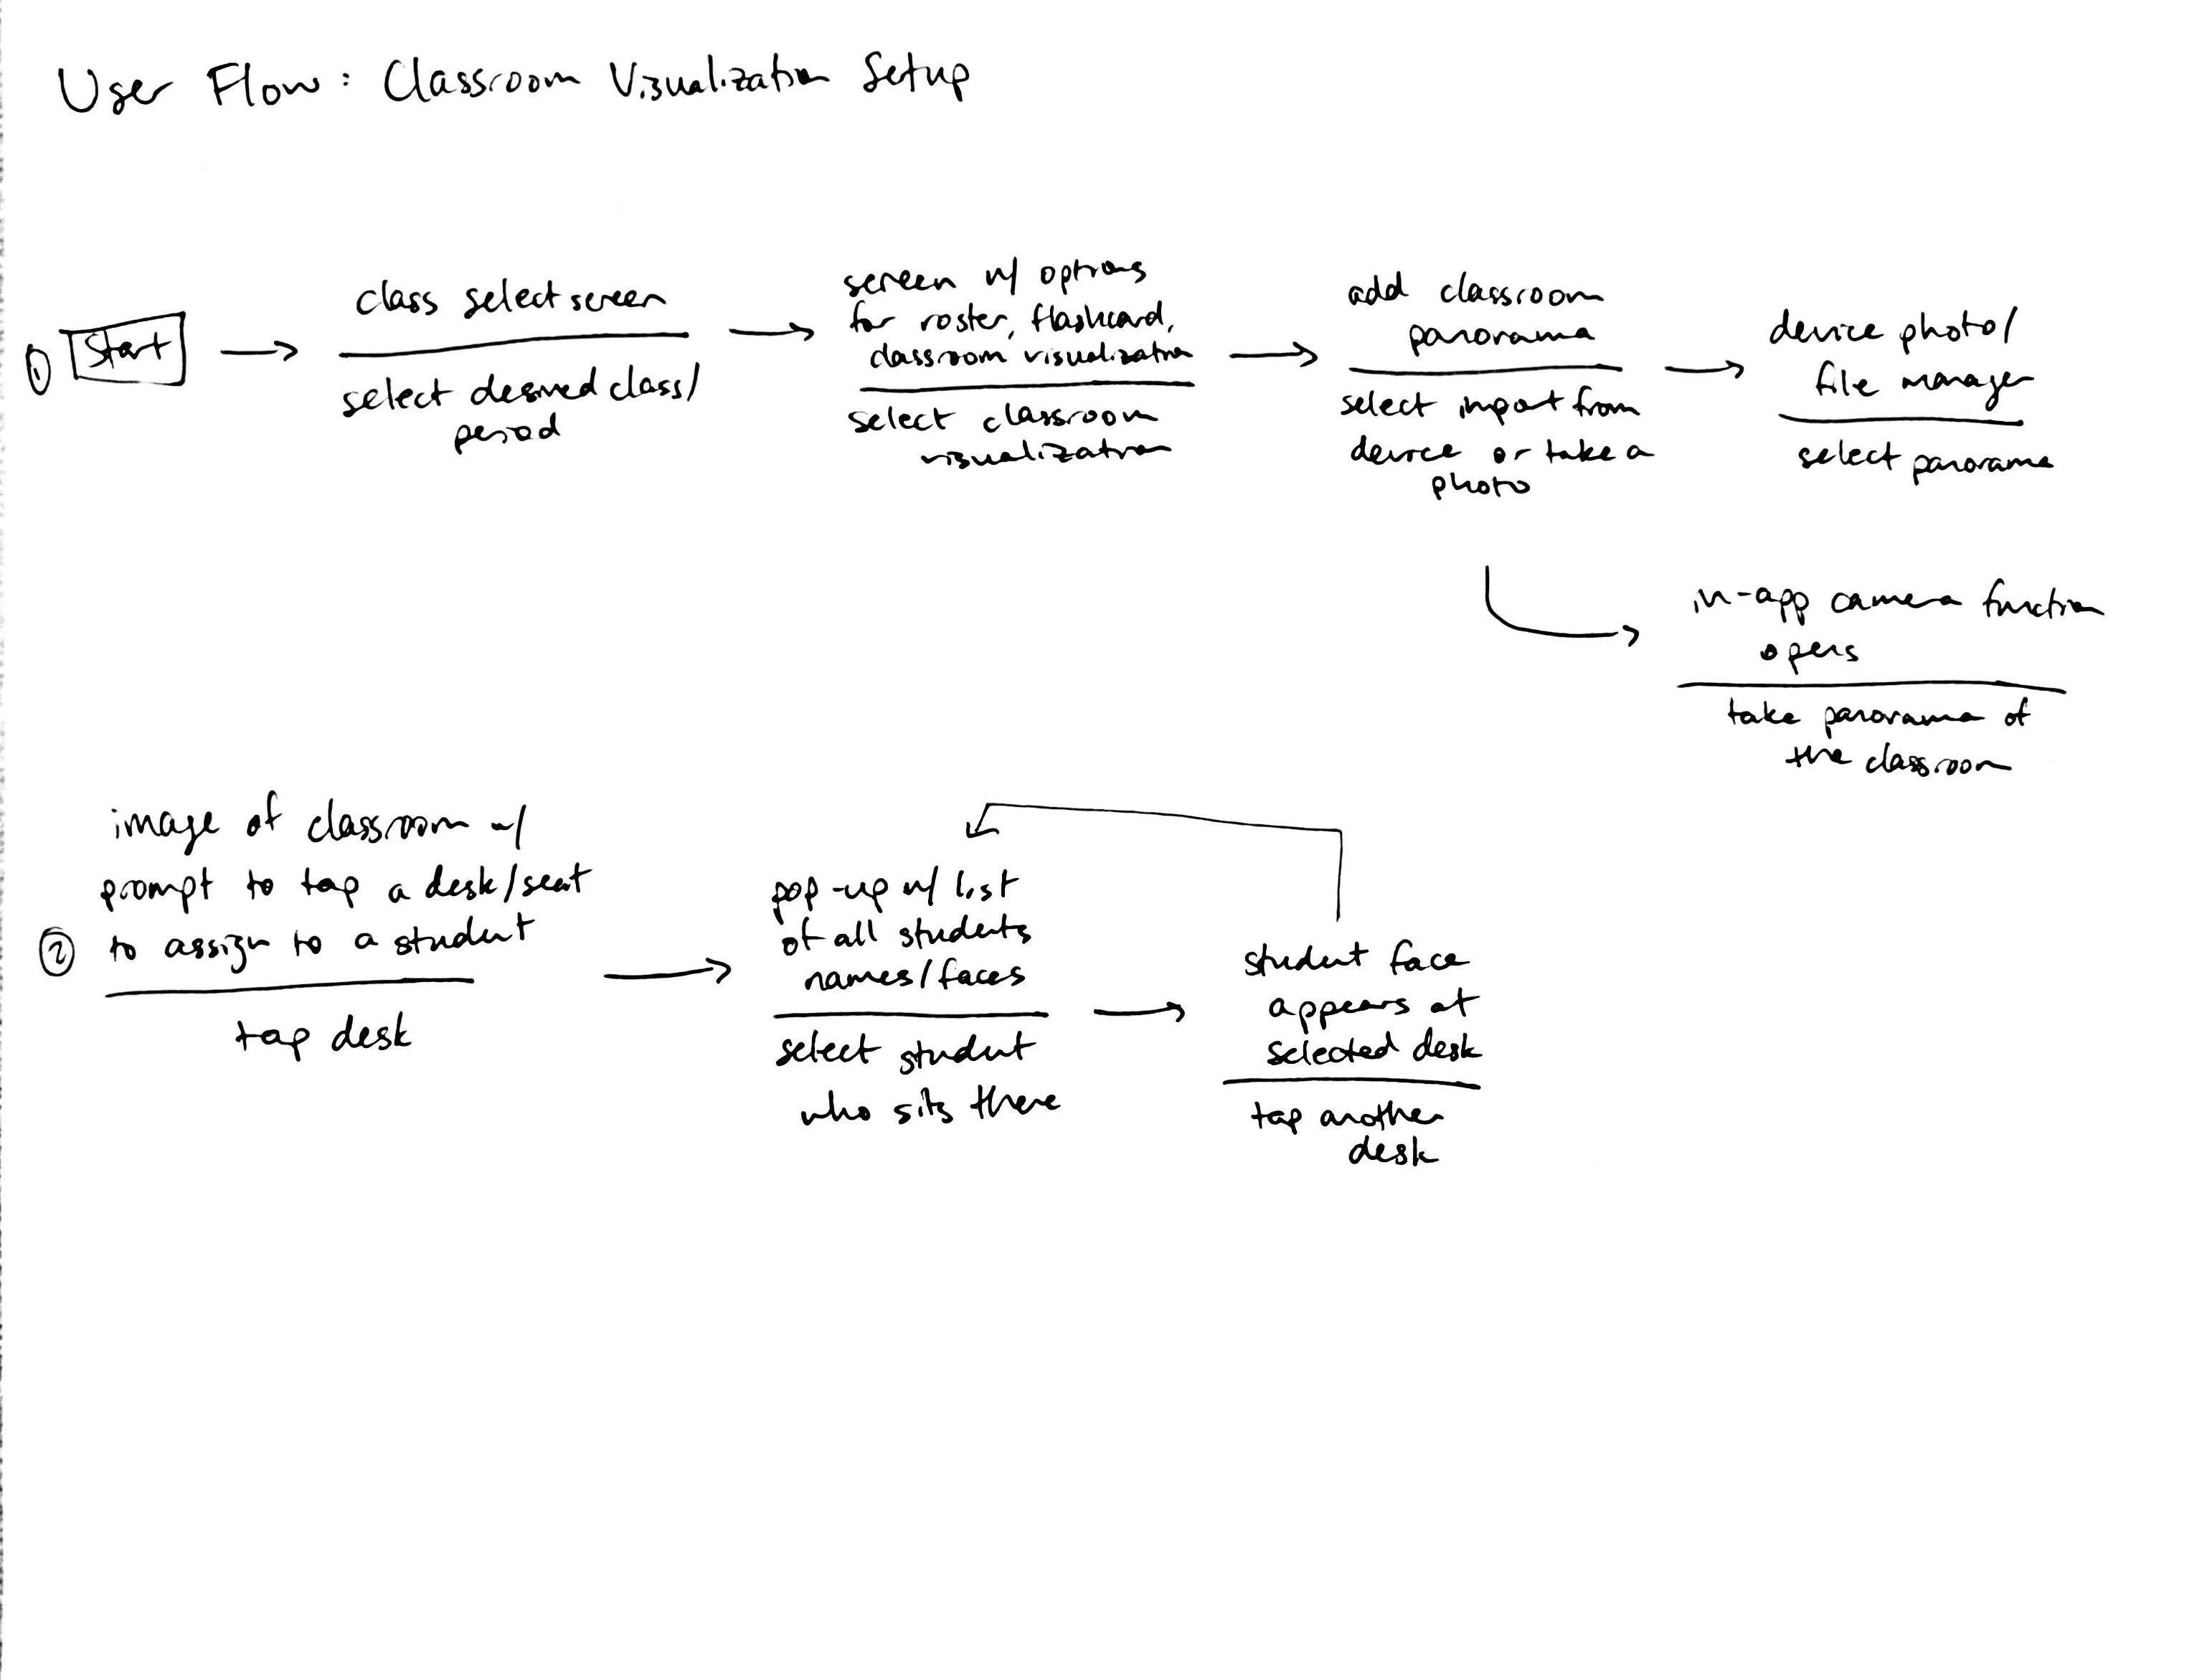 User Flow: Classroom Visualization Setup
①
Start
class select screen
select desired class/
period
screen w/ options
for roster, flashcard,
classroom visualization
select classroom
visualization
add classroom
panorama
select import from
device or take a
photo
device photo/
file manager
select panorama
in-app camera function
opens
take panorama of
the classroom
②
image of classroom w/
prompt to tap a desk/seat
to assign to a student
tap desk
pop-up w/ list
of all students
names/faces
select student
who sits there
student face
appears at
selected desk
tap another
desk